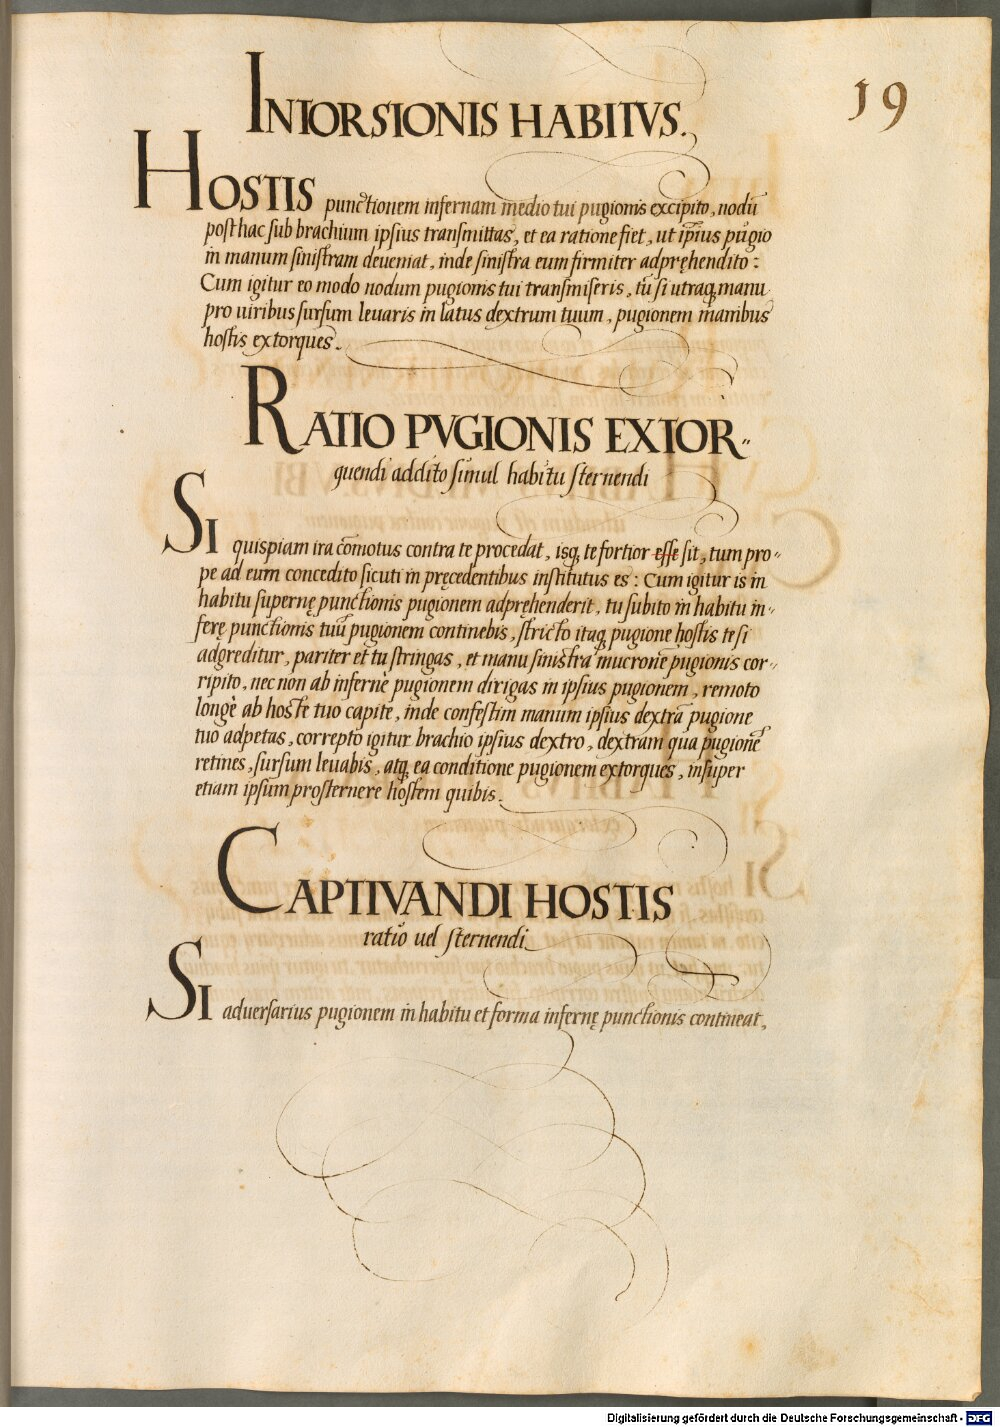 19
INTORSIONIS HABITVS.
HOSTIS punctionem infernam medio tui pugionis excipito, nodū
posthac sub brachium ipsius transmittas, et ea ratione fiet, ut ip̄ius pugio
in manum sinistram deveniat, inde sinistra eum firmiter adpręhendito:
Cum igitur eo modo nodum pugionis tui transmiseris, tū si utraq; manu
pro uiribus sursum leuaris in latus dextrum tuum, pugionem manibus
hostis extorques.
RATIO PVGIONIS EXTOR-
quendi addito simul habitu sternendi
SI quispiam ira cōmotus contra te procedat, isq; te fortior esse sit, tum pro-
pe ad eum concedito sicuti in pręcedentibus institutus es: Cum igitur is in
habitu supernę punctionis pugionem adpręhenderit, tu subito in habitu in-
ferę punctionis tuū pugionem continebis, stricto itaq; pugione hostis te si
adgreditur, pariter et tu stringas, et manu sinistra mucronē pugionis cor-
ripito, nec non ab infernè pugionem dirigas in ipsius pugionem, remoto
longè ab hoste tuo capite, inde confestim manum ipsius dextrā pugione
tuo adpetas, correpto igitur brachio ipsius dextro, dextram qua pugionē
retines, sursum leuabis, atq; ea conditione pugionem extorques, insuper
etiam ipsum prosternere hostem quibis.
CAPTIVANDI HOSTIS
ratio uel sternendi
SI aduersarius pugionem in habitu et forma infernę punctionis contineat,
Digitalisierung gefördert durch die Deutsche Forschungsgemeinschaft - DFG